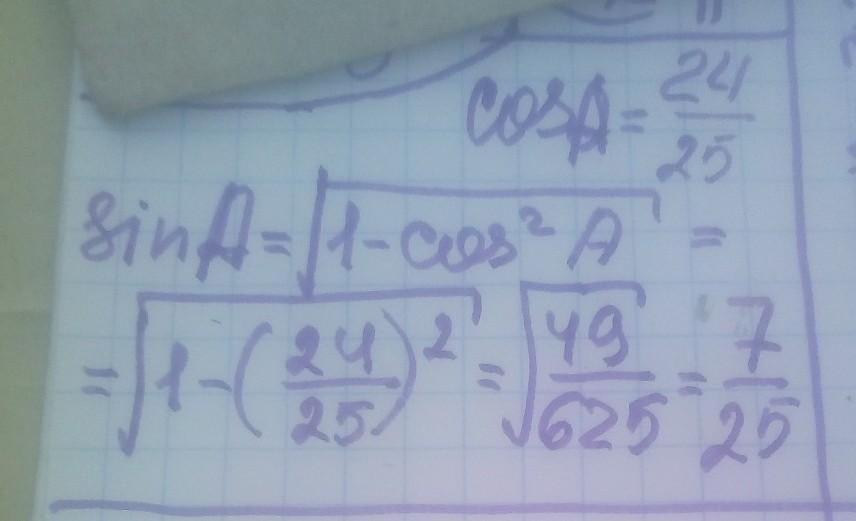 cosA = 24/25
sinA = √(1 - cos² A) =
= √(1 - (24/25)²) = √(49/625) = 7/25